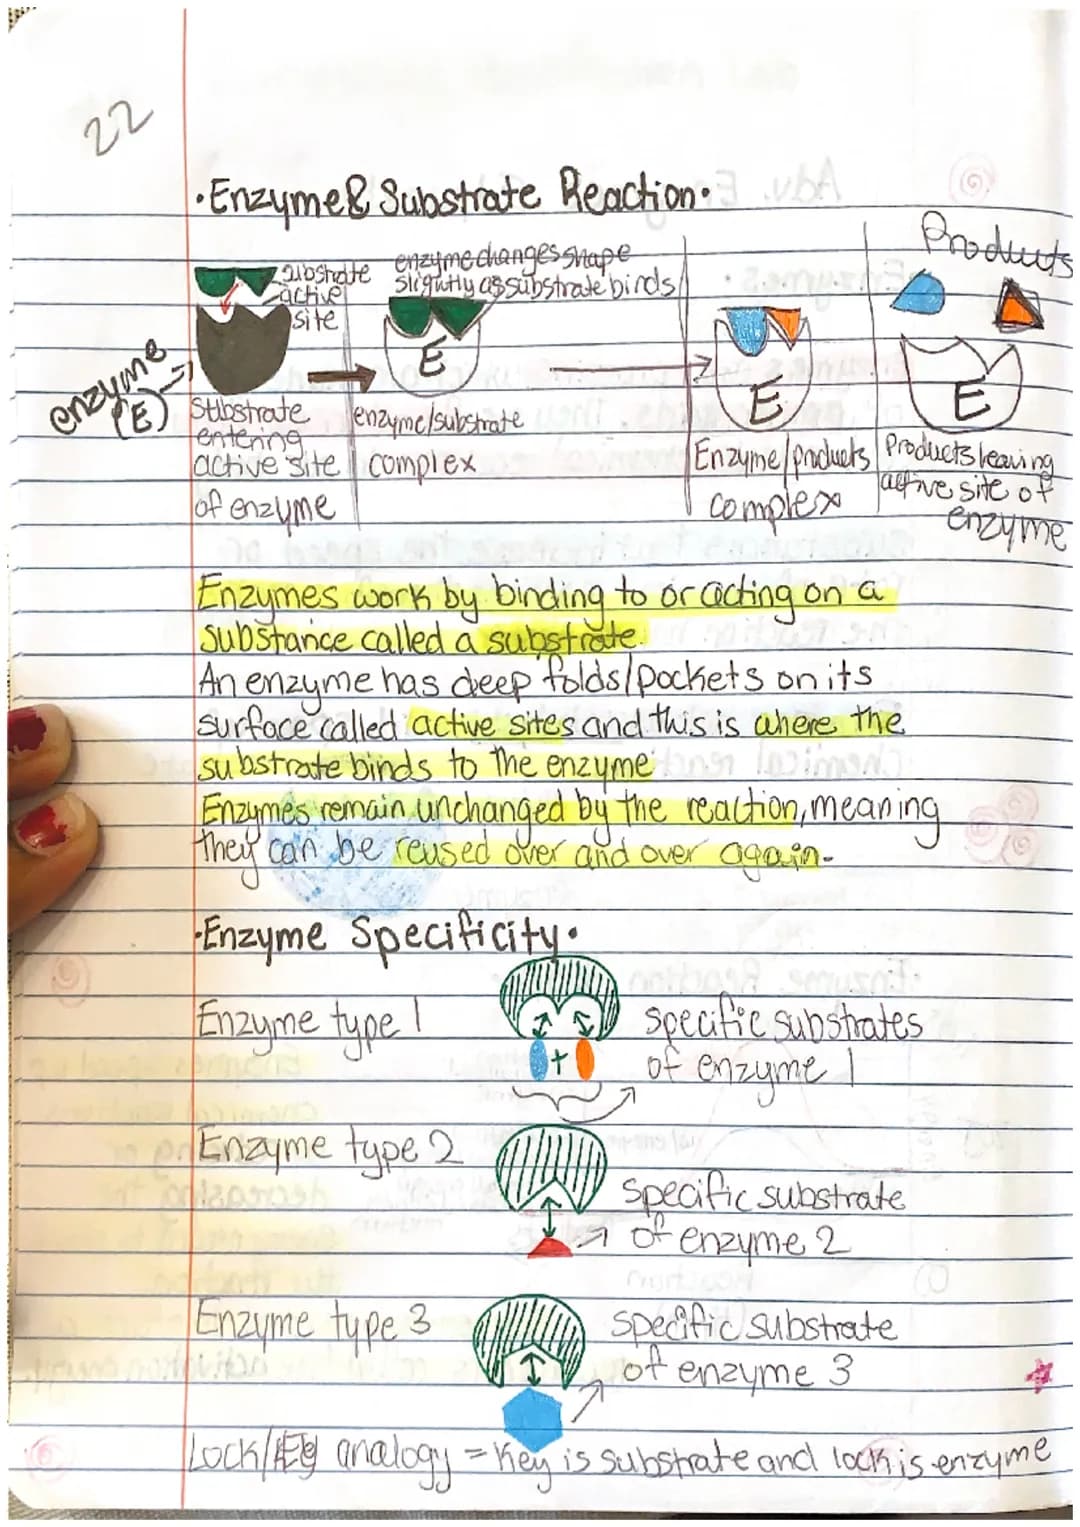 22
·Enzyme & Substrate Reaction·
Products
substrate
active
site
enzyme changes shape
slightly as substrate binds
enzyme
(E)
E
E
E
Substrate
entering
active site
of enzyme
enzyme/substrate
complex
Enzyme/products
complex
Products leaving
active site of
enzyme
Enzymes work by binding to or acting on a
substance called a substrate.
An enzyme has deep folds/pockets on its
surface called active sites and this is where the
substrate binds to the enzyme
Enzymes remain unchanged by the reaction, meaning
they can be reused over and over again.
·Enzyme Specificity·
Enzyme type 1
+
specific substrates
of enzyme 1
Enzyme type 2
specific substrate
of enzyme 2
Enzyme type 3
specific substrate
of enzyme 3
Lock/ analogy = key is substrate and lock is enzyme